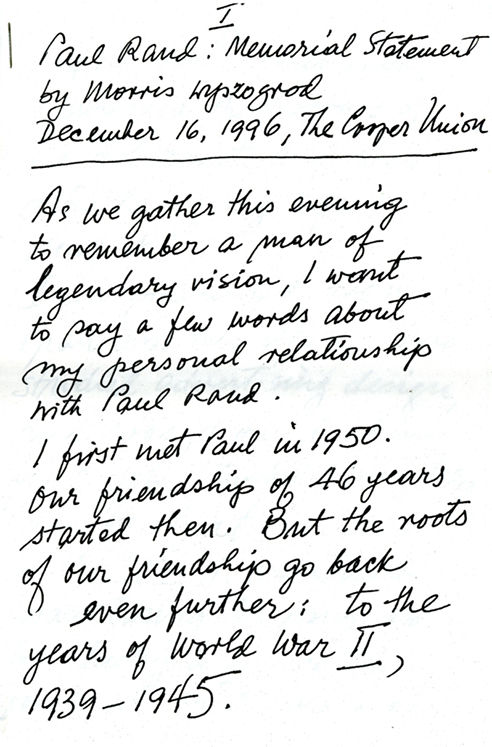 I
Paul Rand: Memorial Statement
by Morris Wyszogrod
December 16, 1996, The Cooper Union
As we gather this evening
to remember a man of
legendary vision, I want
to say a few words about
my personal relationship
with Paul Rand.
I first met Paul in 1950.
Our friendship of 46 years
started then. But the roots
of our friendship go back
even further: to the
years of World War II,
1939-1945.